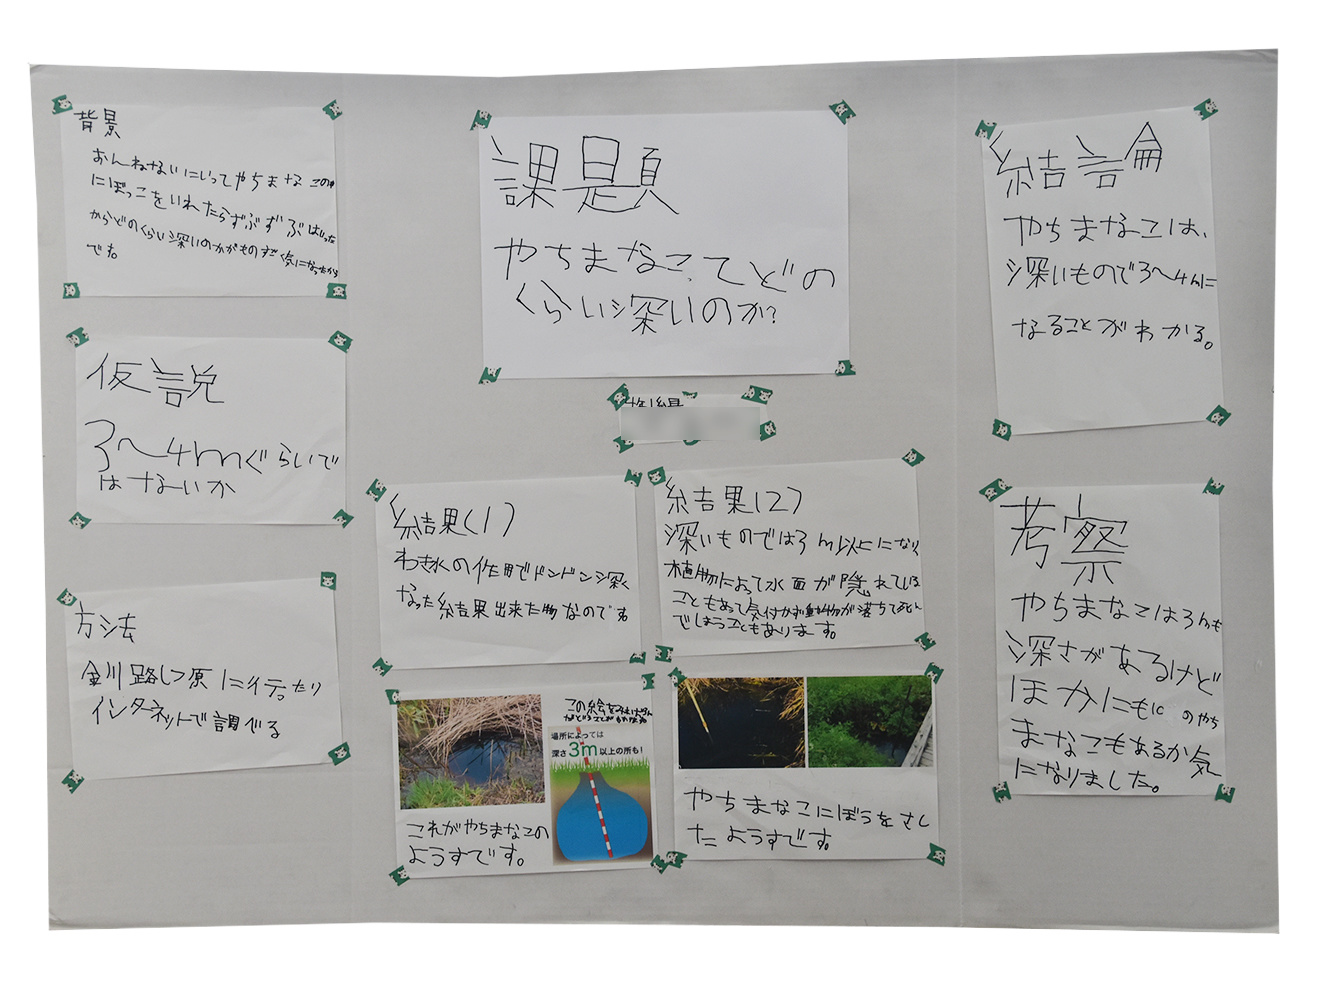 背景
おんねないにいってやちまなこの中
にぼっこをいれたらずぶずぶはいった
からどのくらい深いのかがものすごく気になったから
です。
仮説
3〜4mぐらいで
はないか
方法
釧路しつ原に行ったり
インターネットで調べる
課題
やちまなこってどの
くらい深いのか?
結果(1)
わき水の作用でドンドン深く
なった結果出来た物なのです。
結果(2)
深いものでは3m以上になり
植物によって水面が隠れている
こともあって気付かず動物が落ちて死ん
でしまうこともあります。
この絵を
場所によっては
深さ3m以上の所も!
これがやちまなこの
ようすです。
やちまなこにぼうをさし
たようすです。
結論
やちまなこは、
深いもので3〜4mに
なることがわかる。
考察
やちまなこは3mも
深さがあるけど
ほかにも のやち
まなこもあるか気
になりました。